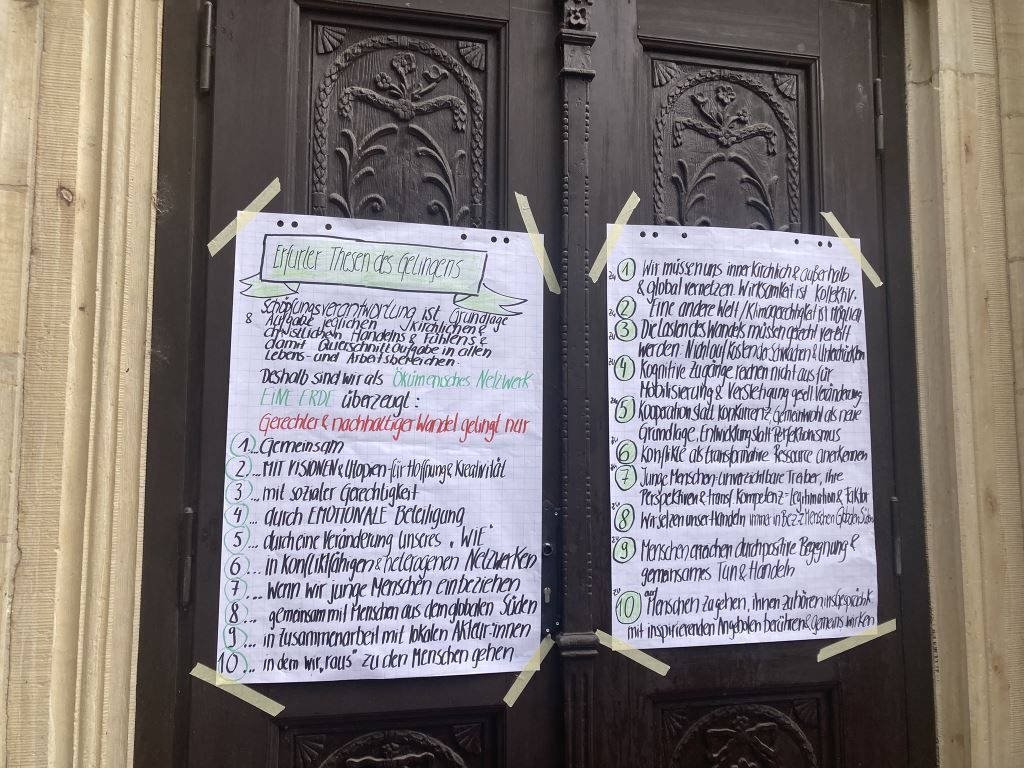 Erfurter Thesen des Gelingens
Schöpfungsverantwortung ist Grundlage
& Aufgabe jeglichen kirchlichen &
christlichen Handelns & Fühlens &
damit Querschnittaufgabe in allen
Lebens- und Arbeitsbereichen.
Deshalb sind wir als Ökumenisches Netzwerk
EINE ERDE überzeugt:
Gerechter & nachhaltiger Wandel gelingt nur
1... Gemeinsam
2... MIT VISIONEN & Utopien für Hoffnung & Kreativität
3... mit sozialer Gerechtigkeit
4... durch EMOTIONALE Beteiligung
5... durch eine Veränderung unseres "WIE"
6... in Konfliktfähigen & heterogenen Netzwerken
7... wenn wir junge Menschen einbeziehen
8... gemeinsam mit Menschen aus dem globalen Süden
9... in zusammenarbeit mit lokalen Akteur:innen
10... in dem wir "raus" zu den Menschen gehen
1 Wir müssen uns innerkirchlich & außerhalb
& global vernetzen. Wirksamkeit ist kollektiv.
2 Eine andere Welt / Klimagerechtigkeit ist möglich
3 Die Lasten des Wandels müssen gerecht verteilt
werden: Nicht auf Kosten der Schwachen &
4 Kognitive Zugänge reichen nicht aus für
Mobilisierung & Verstetigung ges. Veränderung
5 Kooperation statt Konkurrenz, Gemeinwohl als neue
Grundlage, Entwicklung statt Perfektionismus
6 Konflikte als transformative Ressource anerkennen
7 Junge Menschen unverzichtbare Treiber, ihre
Perspektiven & transf. Kompetenz = Legitimation & Faktor
8 Wir setzen unser Handeln immer in Bez. z. Menschen Globalen Süden
9 Menschen erreichen durch positive Begegnung &
gemeinsames Tun & Handeln
10 auf Menschen zugehen, ihnen zuhören, ins Gespräch
mit inspirierenden Angeboten berühren & gemeins. wirken